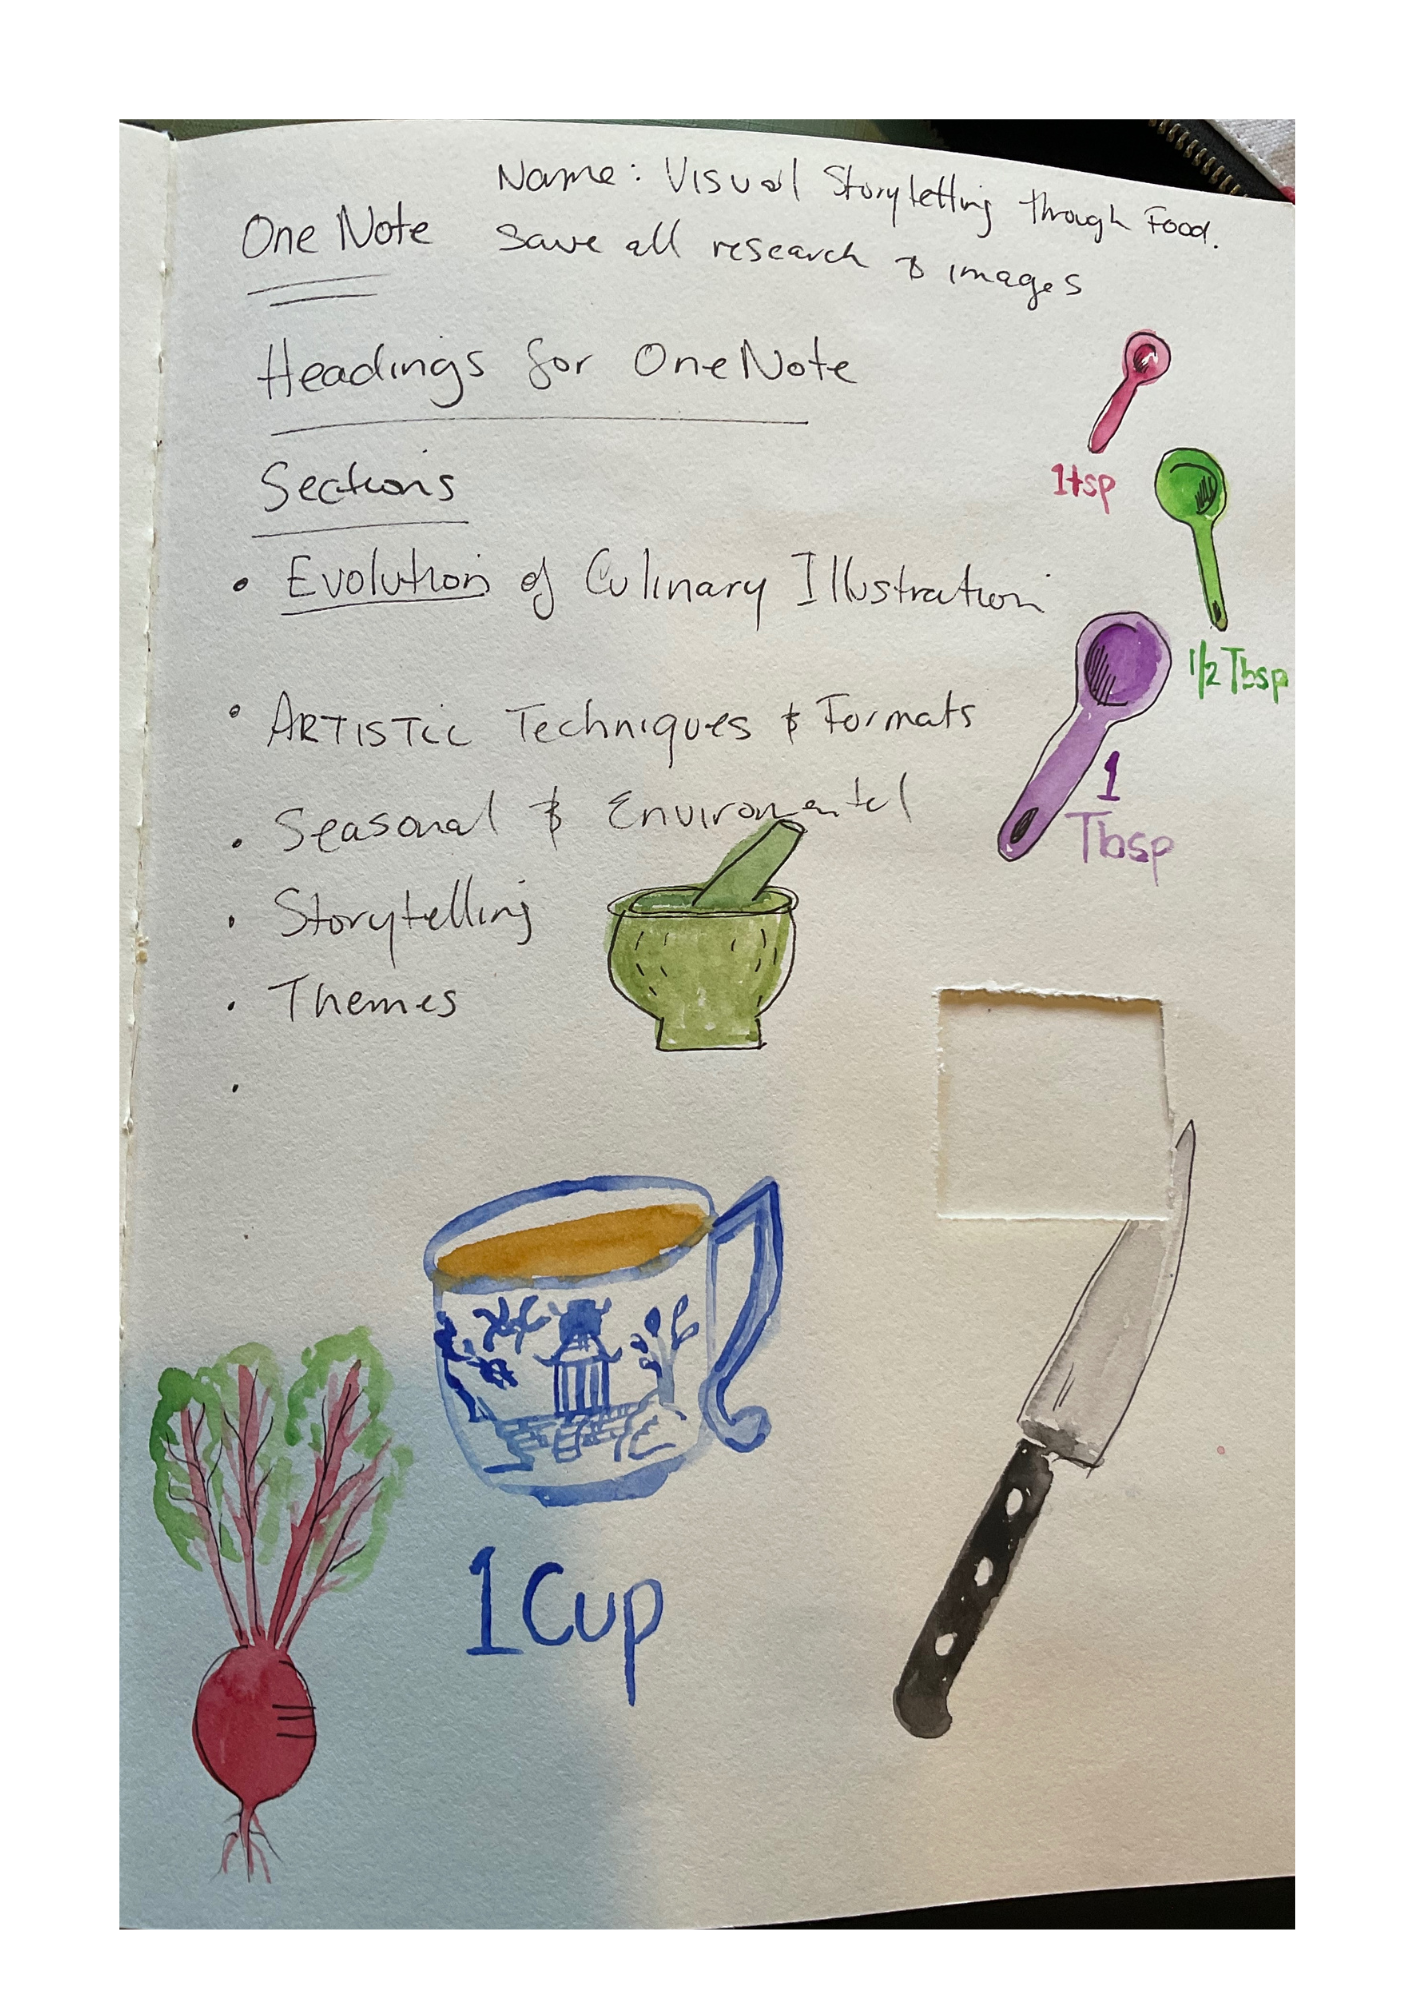 Name: Visual Storytelling through Food.
One Note save all research & images
Headings for OneNote
Sections
• Evolution of Culinary Illustration
• ARTISTIC Techniques & Formats
• Seasonal & Enviromental
• Storytelling
• Themes
•
1tsp
1/2 Tbsp
1
Tbsp
1 Cup